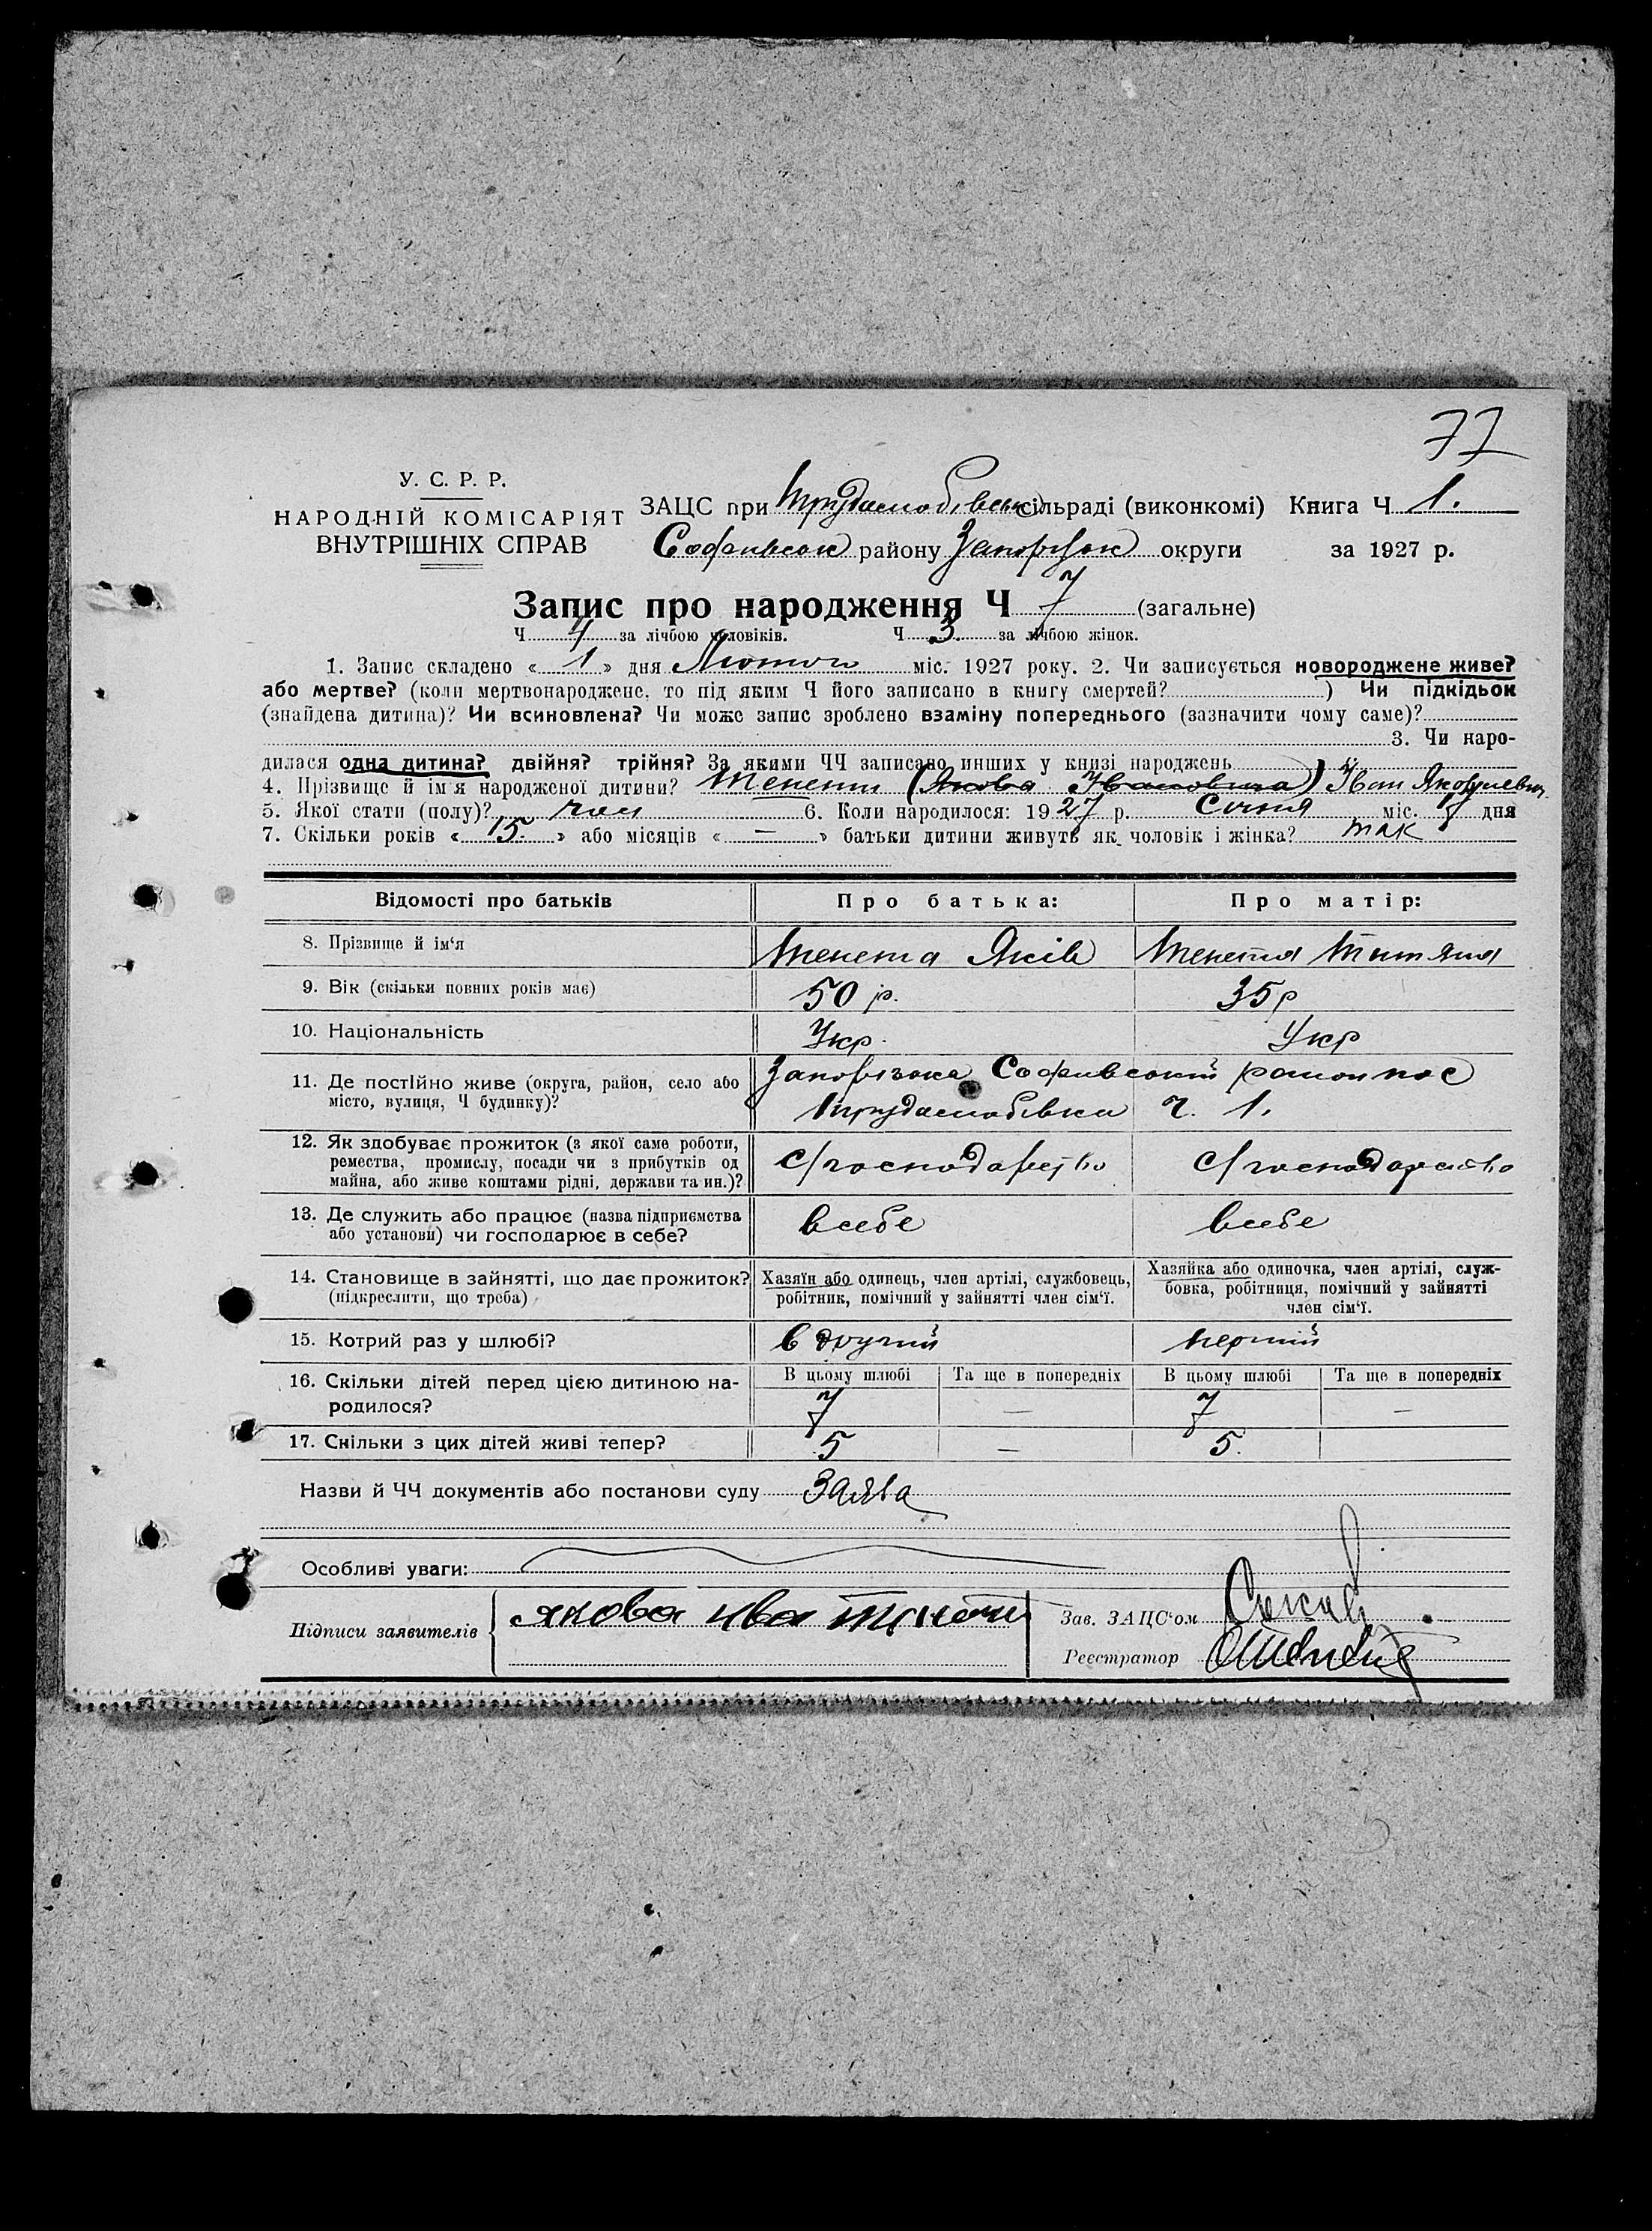 77
У. С. Р. Р.
НАРОДНІЙ КОМІСАРІЯТ
ВНУТРІШНІХ СПРАВ
ЗАЦС при сільраді (виконкомі) Книга Ч 1.
Софіивськ району Запоріжж округи за 1927 р.
Запис про народження Ч 7 (загальне)
Ч 4 за лічбою чоловіків. Ч 3. за лічбою жінок.
1. Запис складено « 1 » дня Лютого міс. 1927 року. 2. Чи записується новороджене живе?
або мертве? (коли мертвонароджене, то під яким Ч його записано в книгу смертей? ) Чи підкідьок
(знайдена дитина)? Чи всиновлена? Чи може запис зроблено взаміну попереднього (зазначити чому саме)?
3. Чи наро-
дилася одна дитина? двійня? трійня? За якими ЧЧ записано инших у книзі народжень
4. Прізвище й ім'я народженої дитини? Тенета (Якова Івановича) Іван Якович
5. Якої стати (полу)? чол 6. Коли народилося: 1927 р. Січня міс. дня
7. Скільки років « 15. » або місяців « — » батьки дитини живуть як чоловік і жінка? так
Відомості про батьків Про батька: Про матір:
8. Прізвище й ім'я Тенета Яків Тенета Титяна
9. Вік (скільки повних років має) 50 р. 35 р
10. Національність Укр. Укр
11. Де постійно живе (округа, район, село або Запорізька Софиивський район пос
місто, вулиця, Ч будинку)? ч. 1.
12. Як здобуває прожиток (з якої саме роботи,
ремества, промислу, посади чи з прибутків од с/господарство с/господарство
майна, або живе коштами рідні, держави та ин.)?
13. Де служить або працює (назва підприємства всебе всебе
або установи) чи господарює в себе?
14. Становище в зайнятті, що дає прожиток? Хазяїн або одинець, член артілі, службовець, Хазяйка або одиночка, член артілі, служ-
(підкреслити, що треба) робітник, помічний у зайнятті член сім'ї. бовка, робітниця, помічний у зайнятті
член сім'ї.
15. Котрий раз у шлюбі? в другий перший
16. Скільки дітей перед цією дитиною на- В цьому шлюбі Та ще в попередніх В цьому шлюбі Та ще в попередніх
родилося? 7 — 7 —
17. Скільки з цих дітей живі тепер? 5 — 5.
Назви й ЧЧ документів або постанови суду Заява
Особливі уваги:
Підписи заявителів якова ива Зав. ЗАЦС'ом
Реєстратор